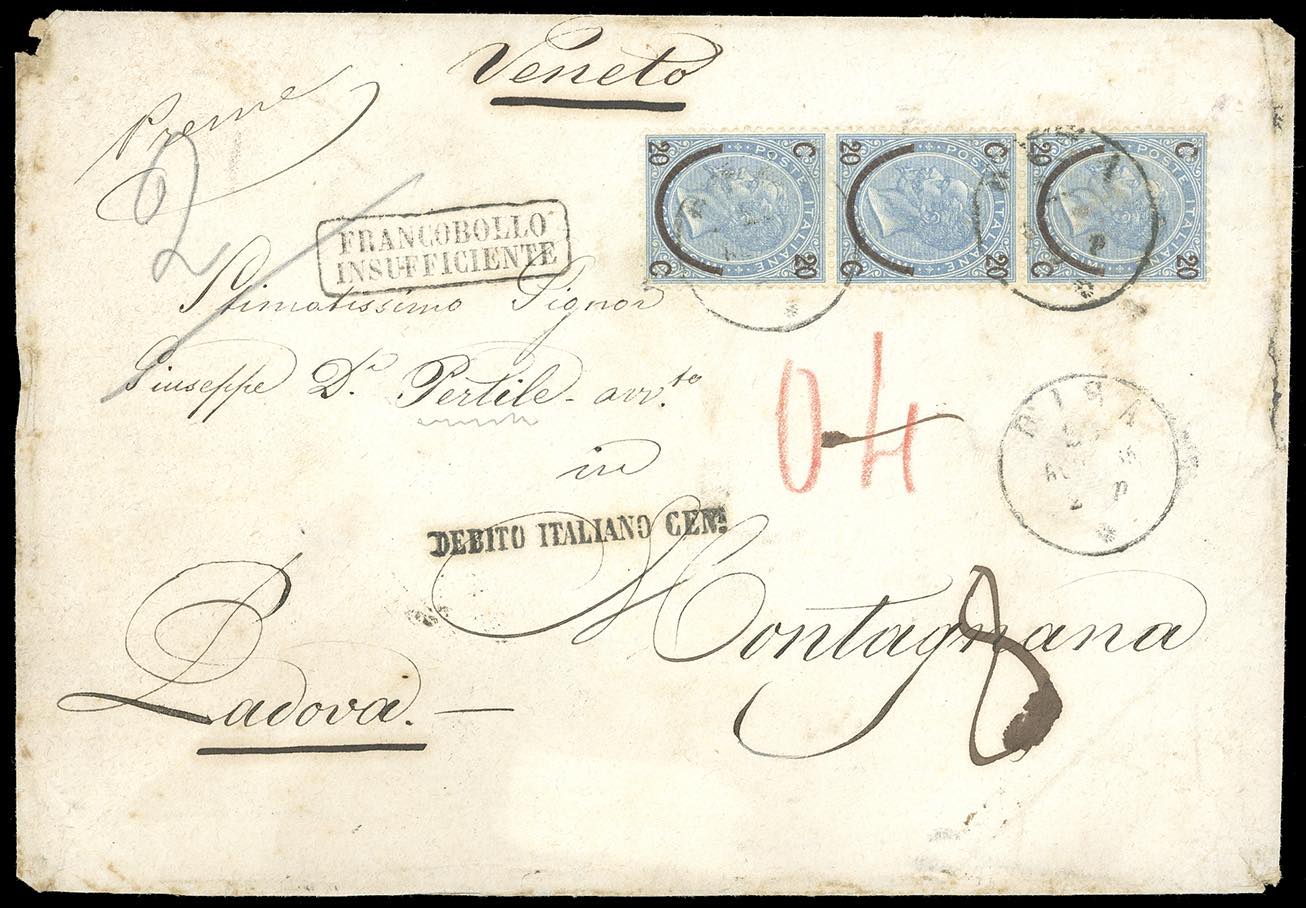 Veneto
Preme
2
FRANCOBOLLO
INSUFFICIENTE
C 20 POSTE ITALIANE 20 C
C 20 POSTE ITALIANE 20 C
C 20 POSTE ITALIANE 20 C
Stimatissimo Signor
Giuseppe D.r Pertile - avv.to
04
PISA
in
DEBITO ITALIANO CENi.
Montagnana
8
Padova. —